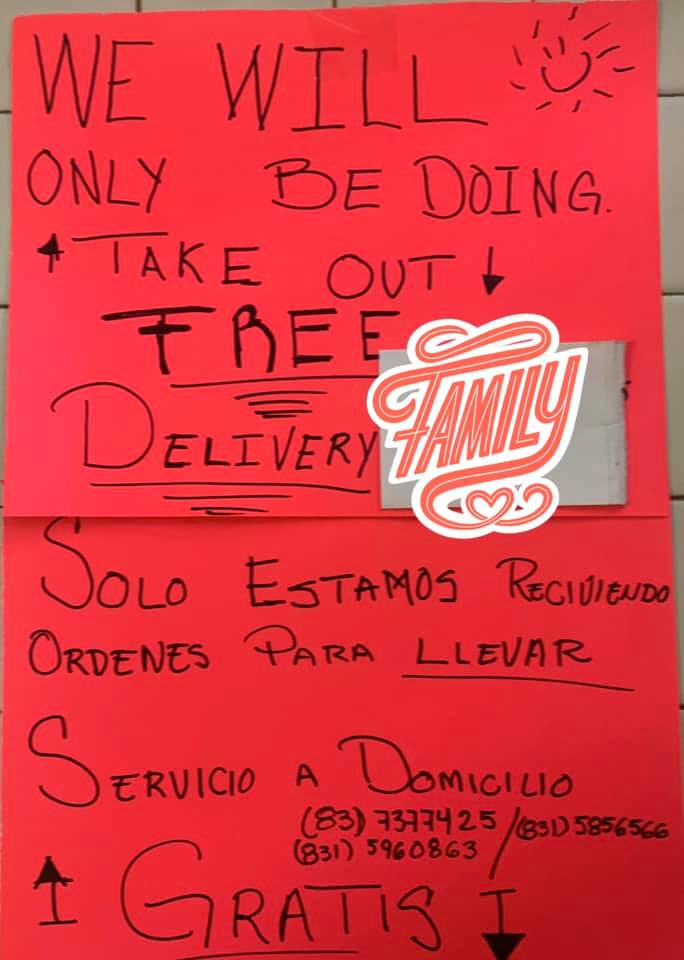 WE WILL
ONLY BE DOING.
TAKE OUT
FREE
DELIVERY
FAMILY
SOLO ESTAMOS RECIVIENDO
ORDENES PARA LLEVAR
SERVICIO A DOMICILIO
(83) 7377425 / (831) 5856566
(831) 5960863
GRATIS